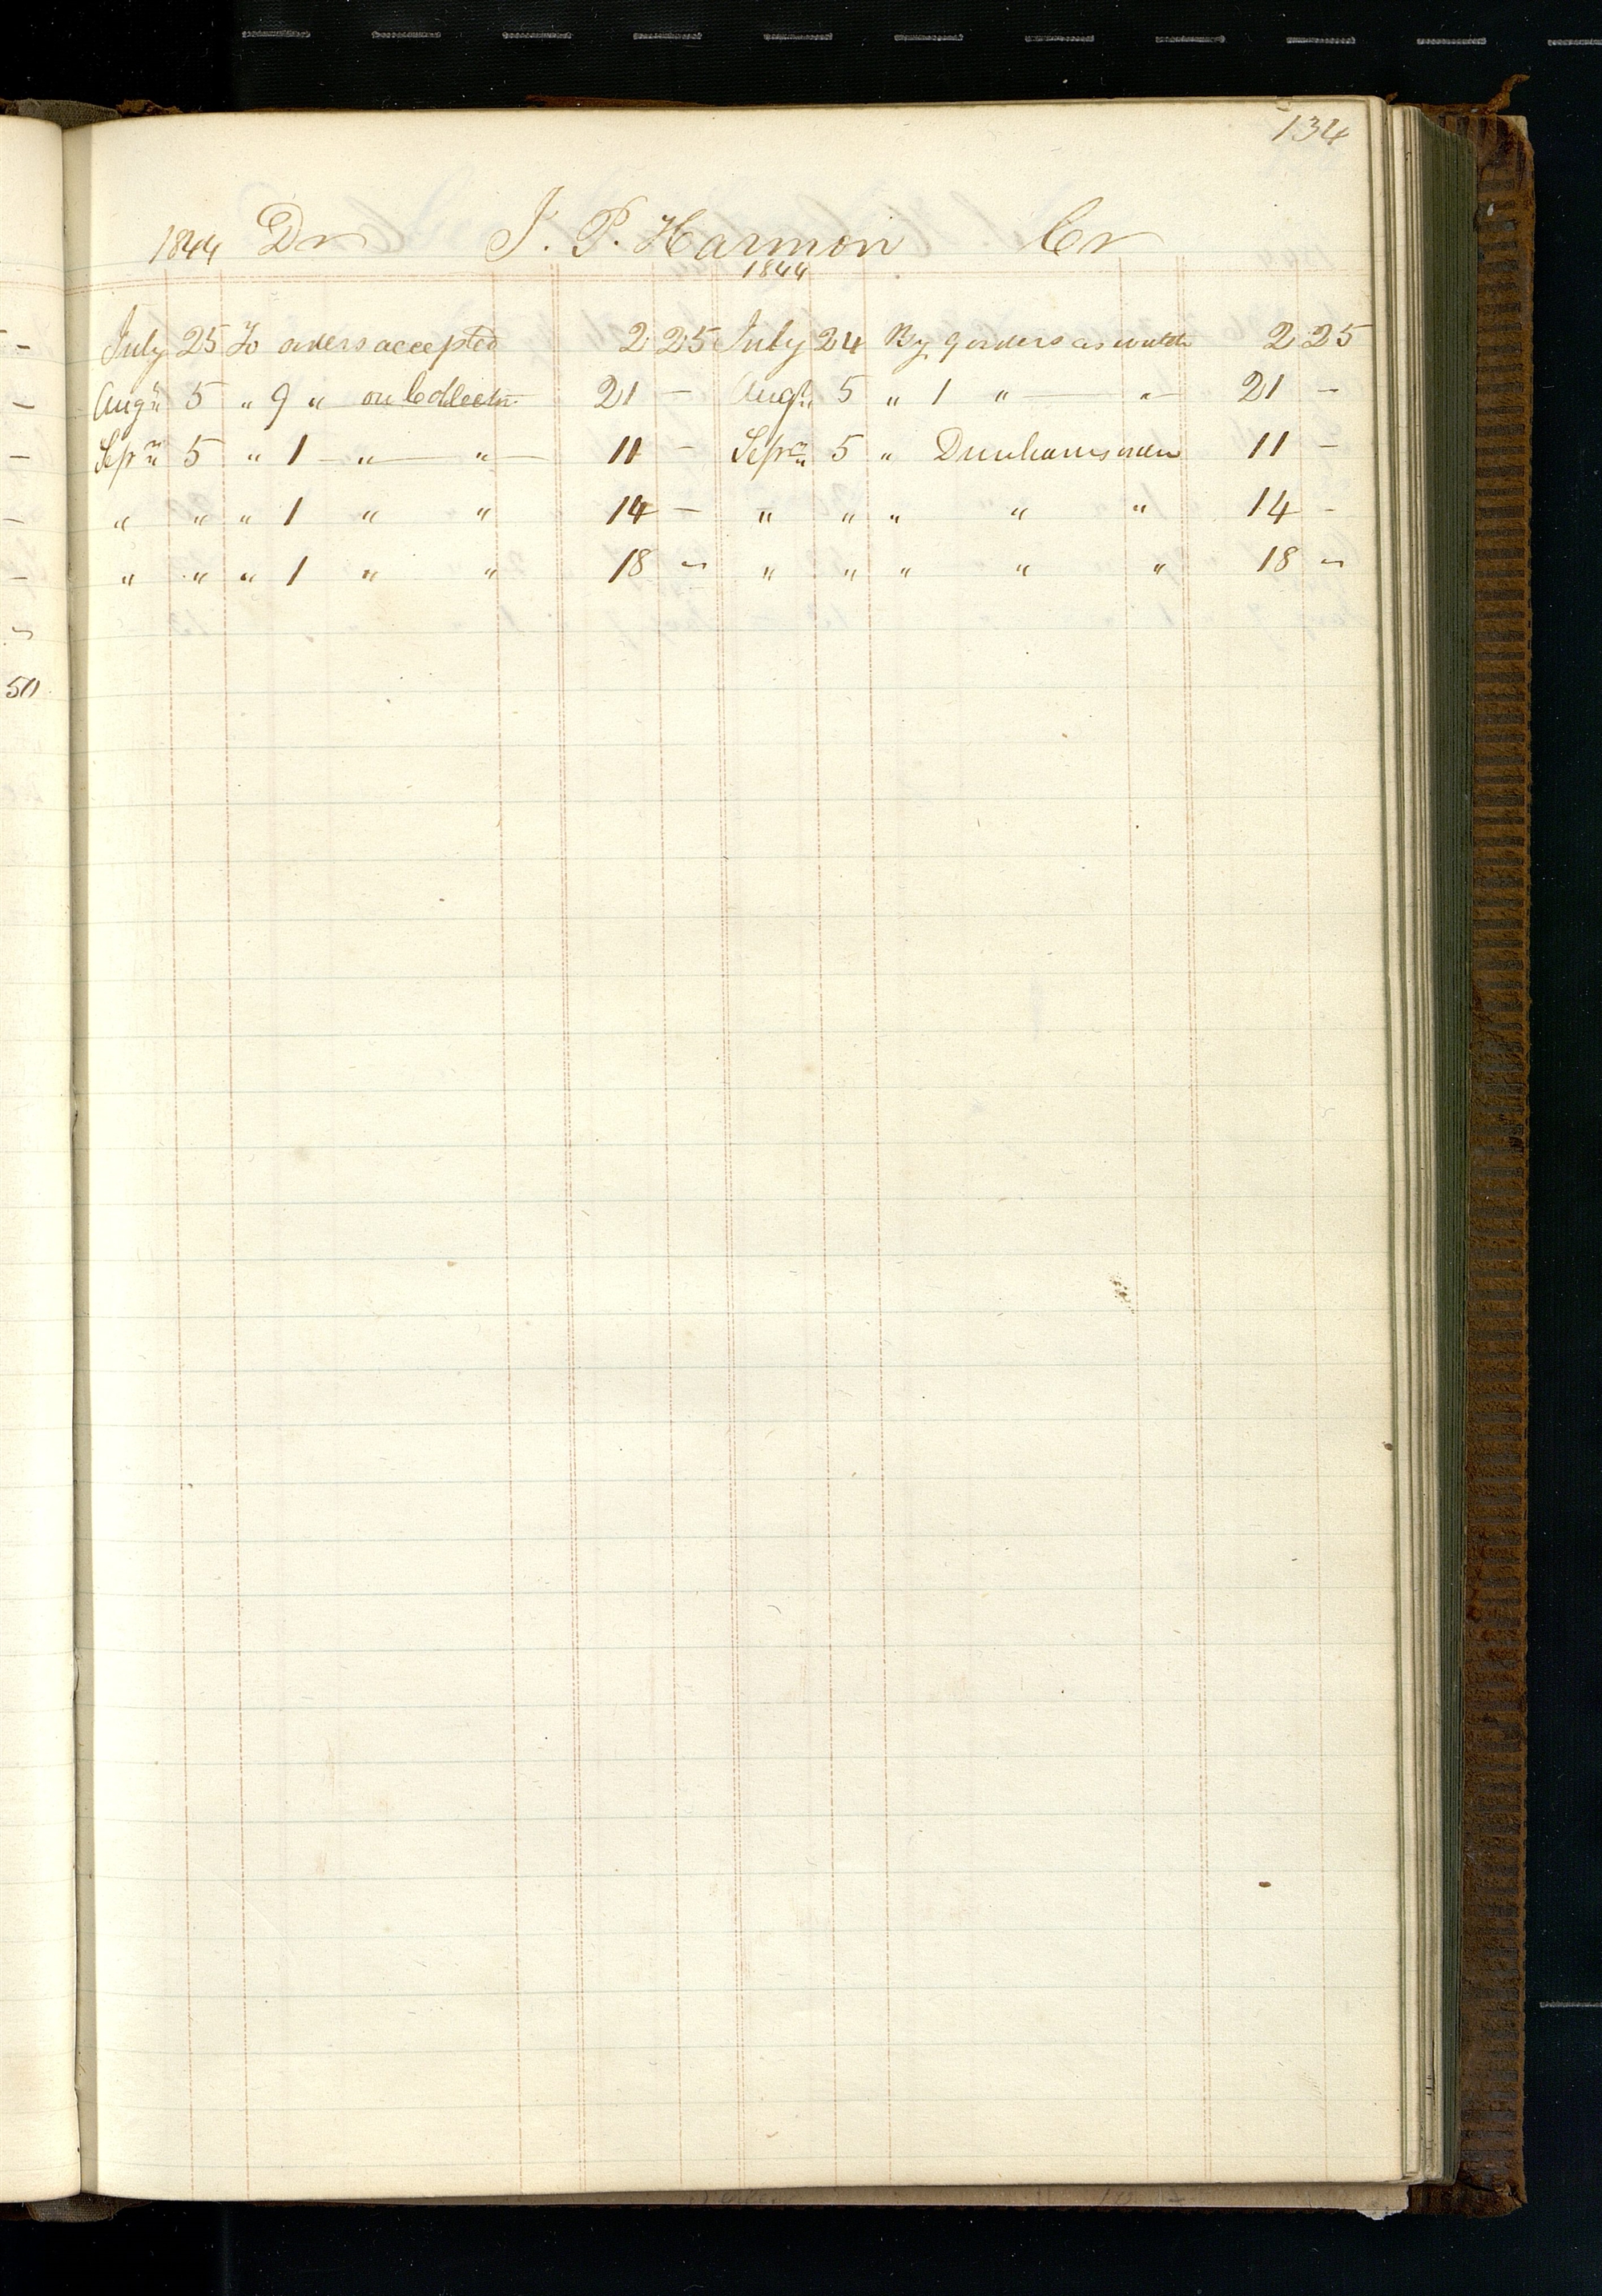 134
1844 Dr J. P. Harmon Cr
1844
July 25 To orders accepted 2 25 July 24 By 9 orders as 2 25
Augu 5 " 9 " on Collectn 21 - Augt 5 " 1 " " 21 -
Sepr 5 " 1 " " 11 - Sepr 5 " Dunhams order 11 -
" " " 1 " " 14 - " " " " " 14 -
" " " 1 " " 18 - " " " " " 18 -
50